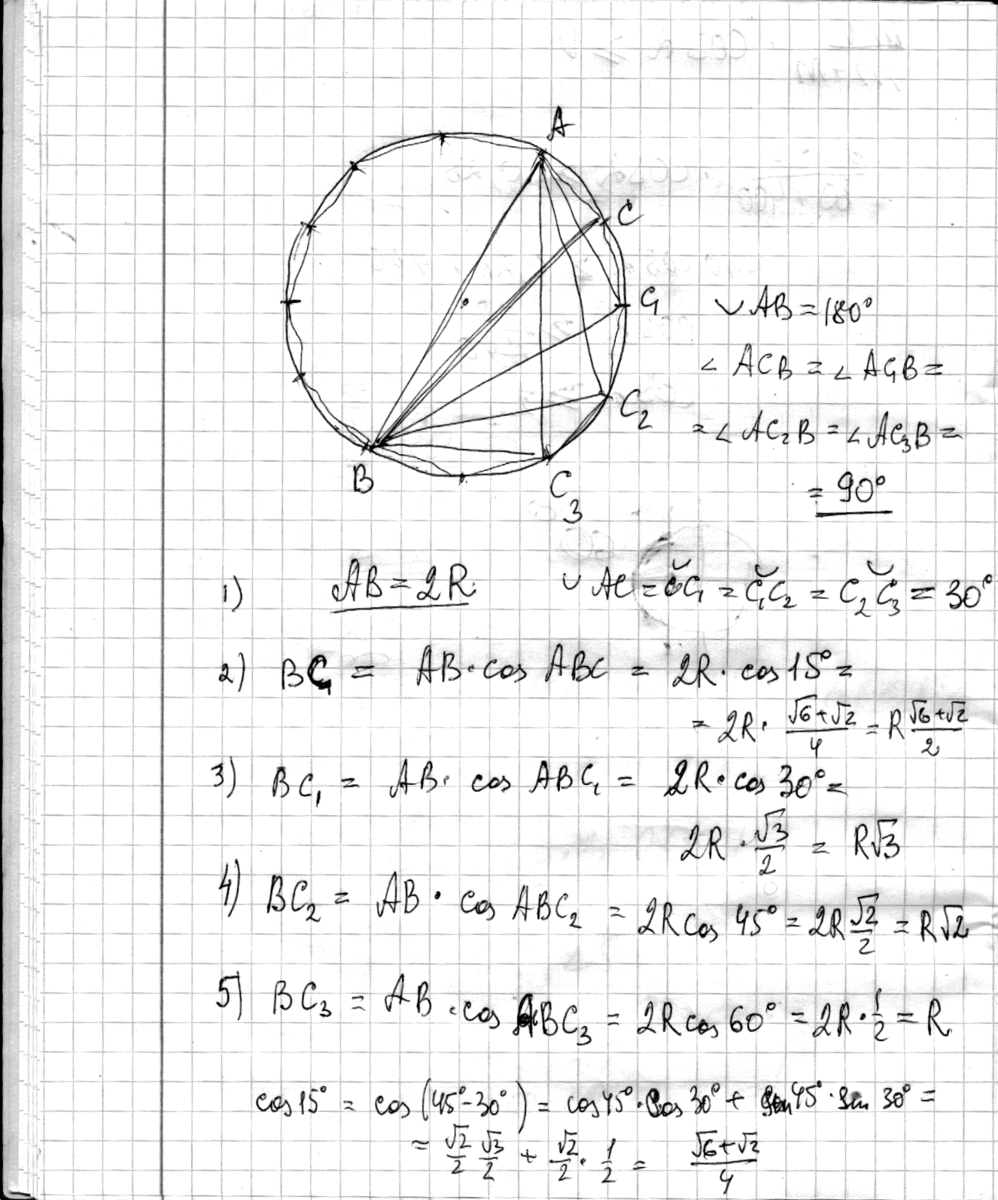 A
C
C₁
C₂
C₃
B
◡AB = 180°
∠ ACB = ∠ AC₁B =
= ∠ AC₂B = ∠ AC₃B =
= 90°
1) AB = 2R ◡ AC = C̆C₁ = C₁̆C₂ = C₂̆C₃ = 30°
2) BC = AB · cos ABC = 2R · cos 15° =
= 2R · (√6+√2)/4 = R (√6+√2)/2
3) BC₁ = AB · cos ABC₁ = 2R · cos 30° =
2R · √3/2 = R√3
4) BC₂ = AB · cos ABC₂ = 2R cos 45° = 2R √2/2 = R√2
5) BC₃ = AB · cos ABC₃ = 2R cos 60° = 2R · 1/2 = R
cos 15° = cos (45° - 30°) = cos 45° · cos 30° + sin 45° · sin 30° =
= √2/2 √3/2 + √2/2 · 1/2 = (√6+√2)/4